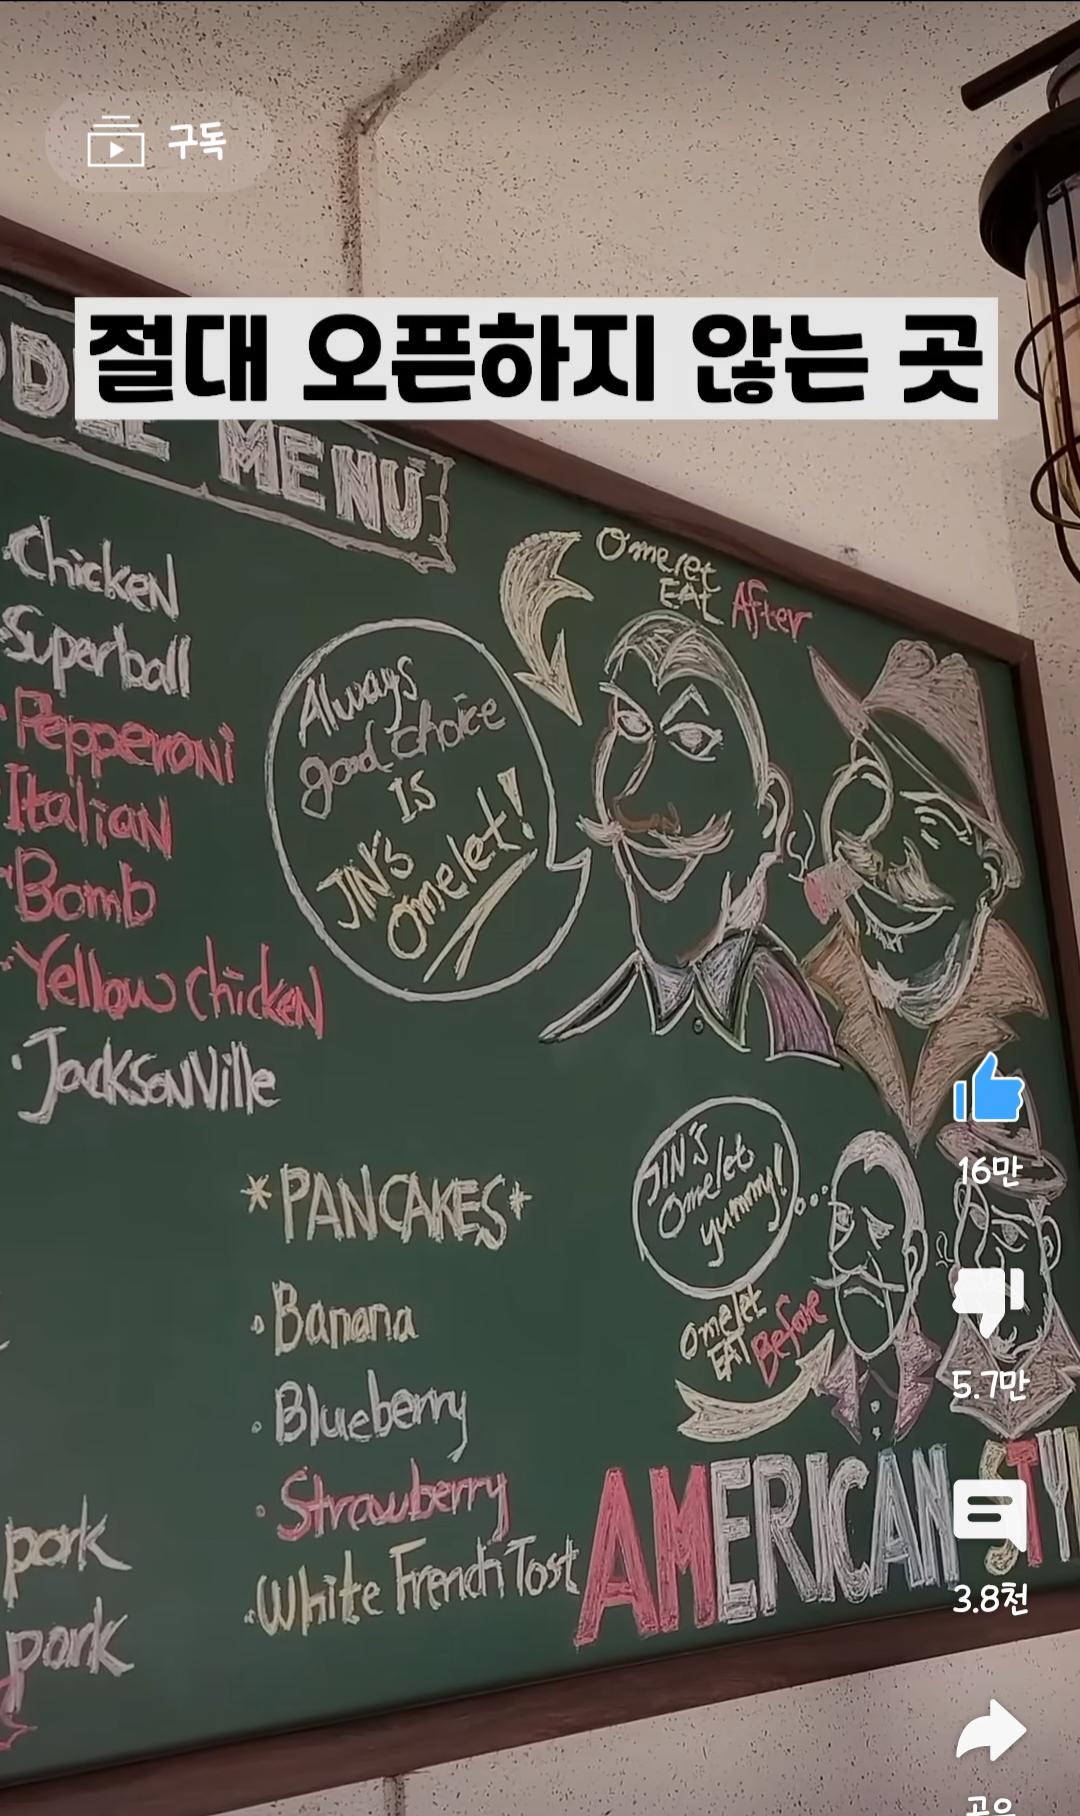 구독
절대 오픈하지 않는 곳
MENU
Chicken
Superball
Pepperoni
Italian
Bomb
Yellow chicken
Jacksonville
Omelet
EAT After
Always
good choice
Is
JIN'S
Omelet!
*PANCAKES*
Banana
Blueberry
Strawberry
White French Tost
JIN'S
Omelet
yummy!
Omelet
EAT Before
pork
pork
AMERICAN
16만
5.7만
3.8천